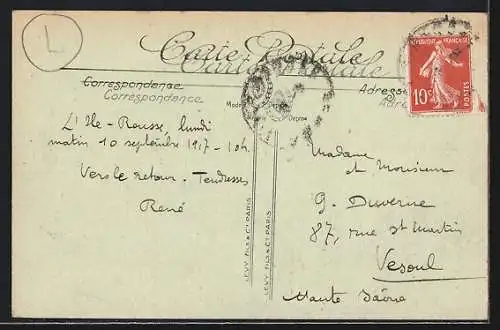 L
Carte Postale
Carte Postale
Correspondance
Correspondance
Adresse
Adresse
REPUBLIQUE FRANÇAISE
10c
POSTES
L'Ile-Rousse, lundi
matin 10 septembre 1917 - 10h.
Vers le retour. Tendresses
René
Madame
et Monsieur
G. Duverne
87, rue St Martin
Vesoul
Haute Saône
LEVY FILS & Cie PARIS
LEVY FILS & Cie PARIS